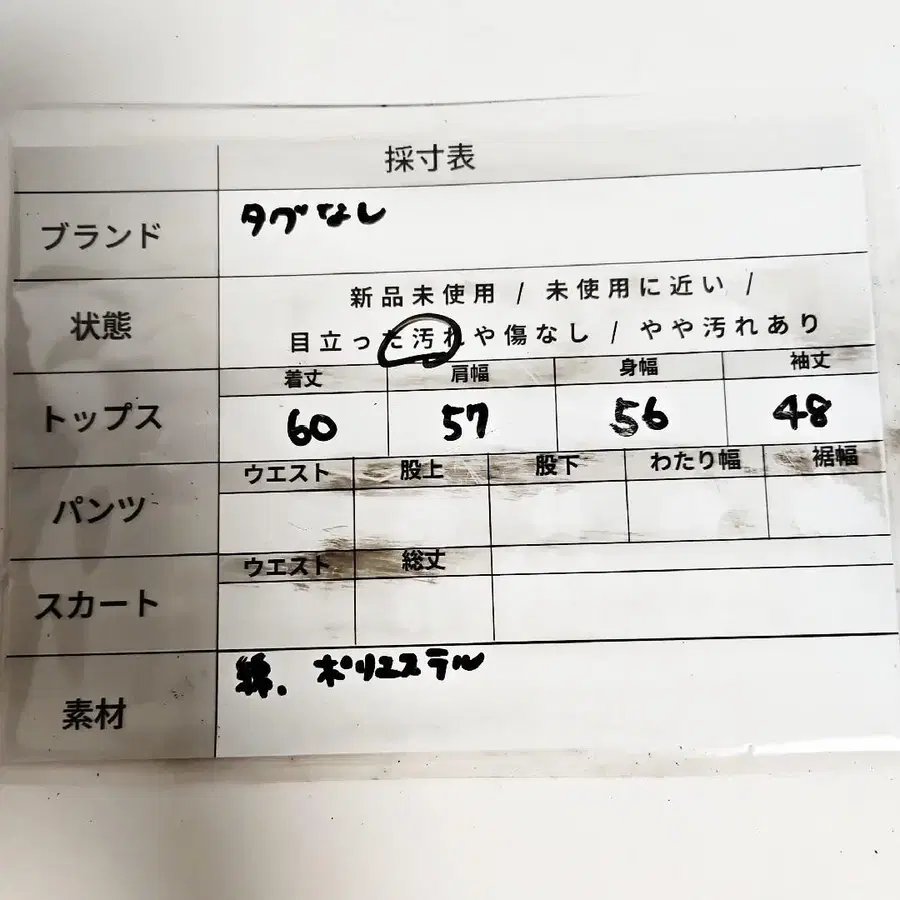 採寸表
ブランド タグなし
新品未使用 / 未使用に近い /
状態
目立った汚れや傷なし / やや汚れあり
着丈 肩幅 身幅 袖丈
トップス 60 57 56 48
ウエスト 股上 股下 わたり幅 裾幅
パンツ
ウエスト 総丈
スカート
綿. ポリエステル
素材